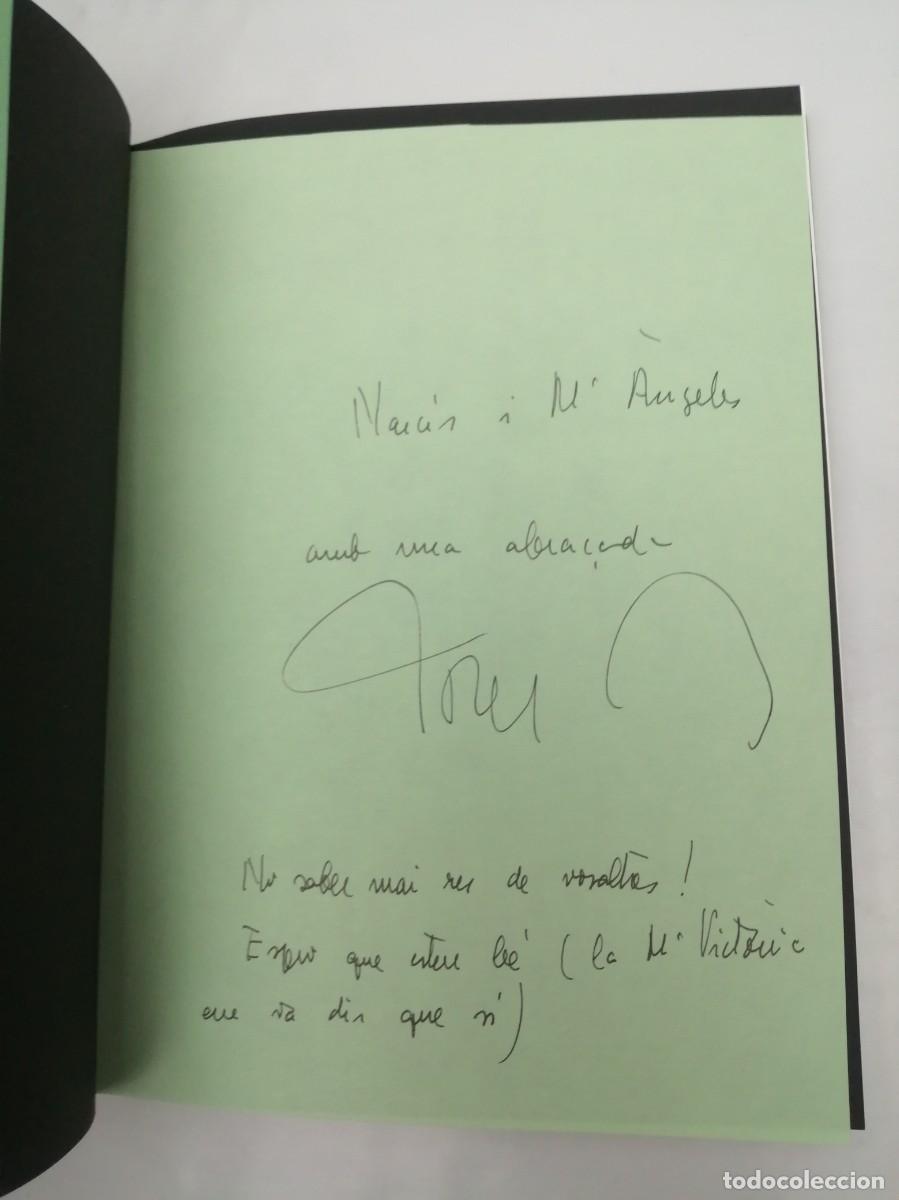 Narcís i Mª Àngeles
amb una abraçada
No saber mai res de vosaltres!
Espero que esteu bé (la Mª Victòria
em va dir que sí)
todocoleccion